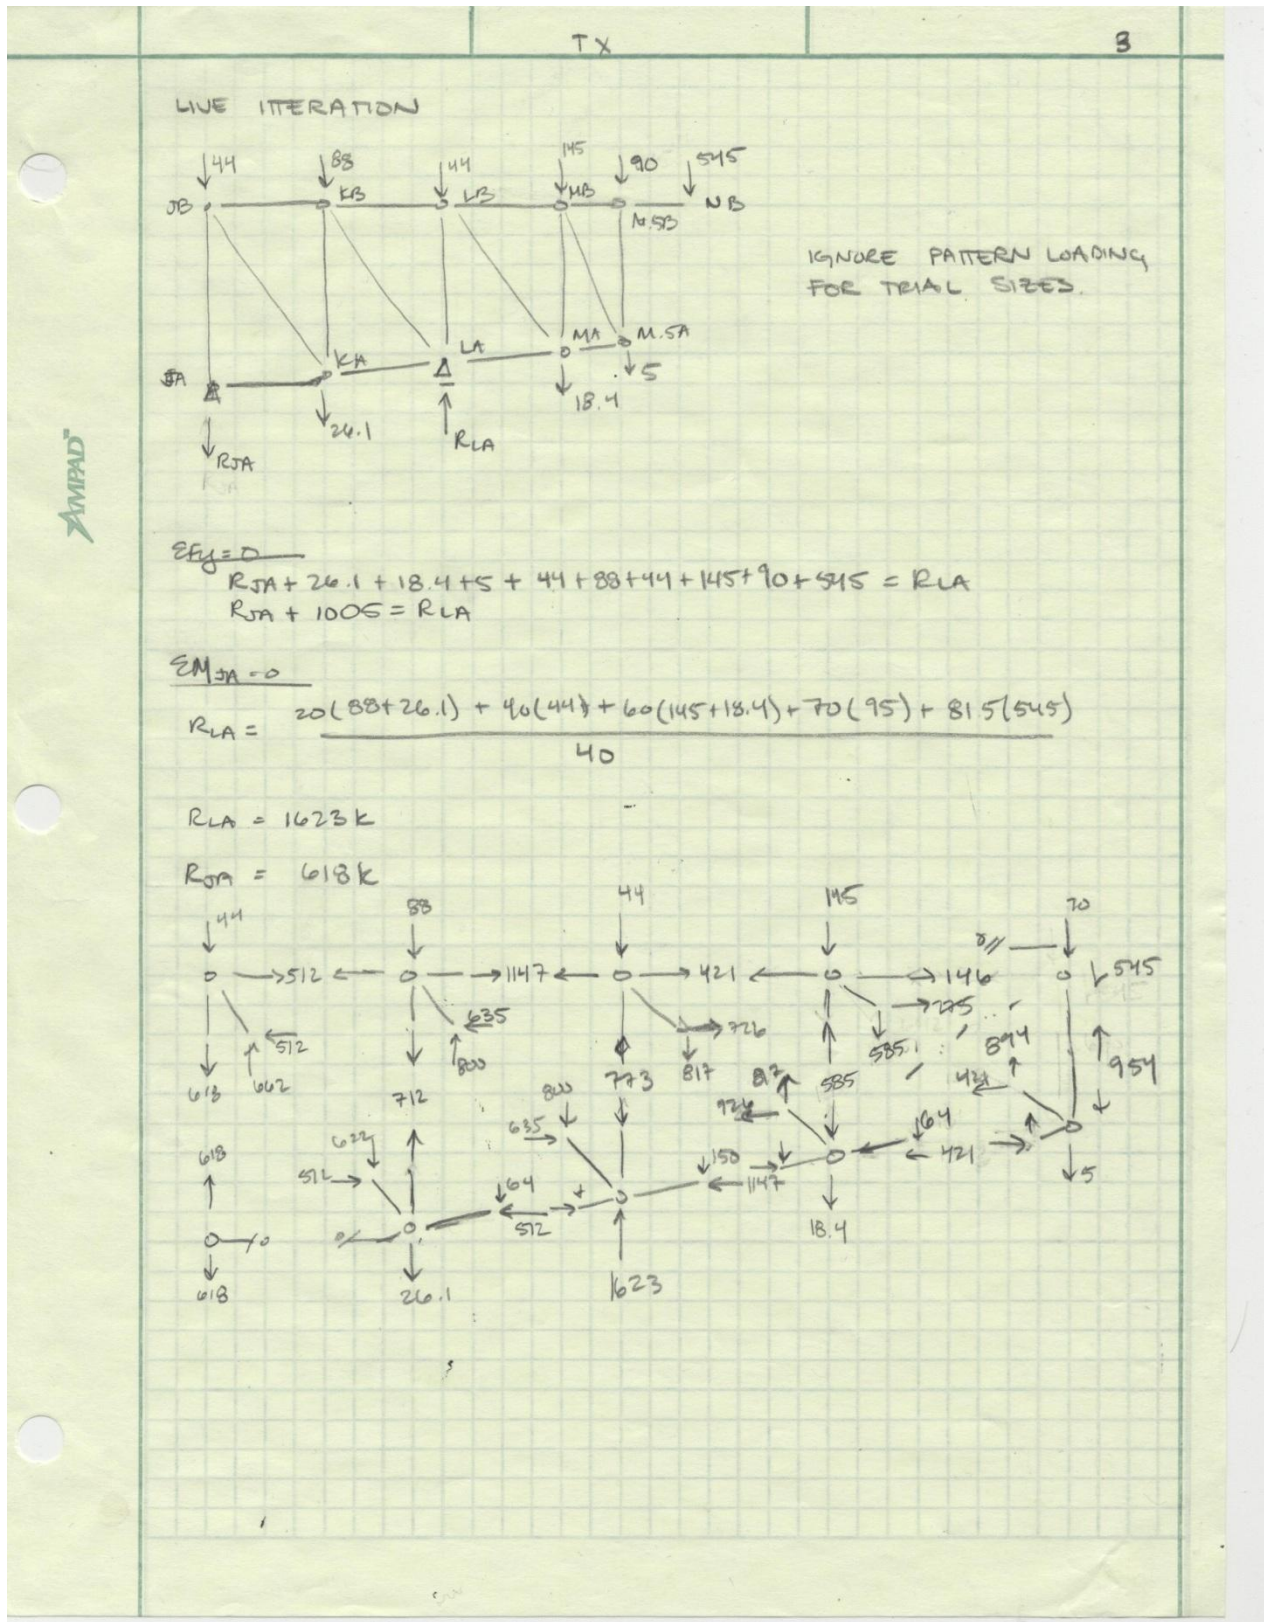 TX 3
LIVE ITTERATION
44 88 44 145 90 545
JB KB LB MB M.5B NB
IGNORE PATTERN LOADING
FOR TRIAL SIZES.
JA KA LA MA M.5A
26.1 18.4 5
RJA RLA
AMPAD
ΣFy=0
RJA + 26.1 + 18.4 + 5 + 44 + 88 + 44 + 145 + 90 + 545 = RLA
RJA + 1005 = RLA
ΣMJA=0
RLA = 20(88+26.1) + 40(44) + 60(145+18.4) + 70(95) + 81.5(545)
40
RLA = 1623K
RJA = 618K
44 88 44 145
512 1147 421 146 545
512 635 726 275
662 800 817 585 894
618 712 773 585 954
618 622 800 817 421
512 635 926 64
64 150 421 5
512 1147
18.4
618 26.1 1623